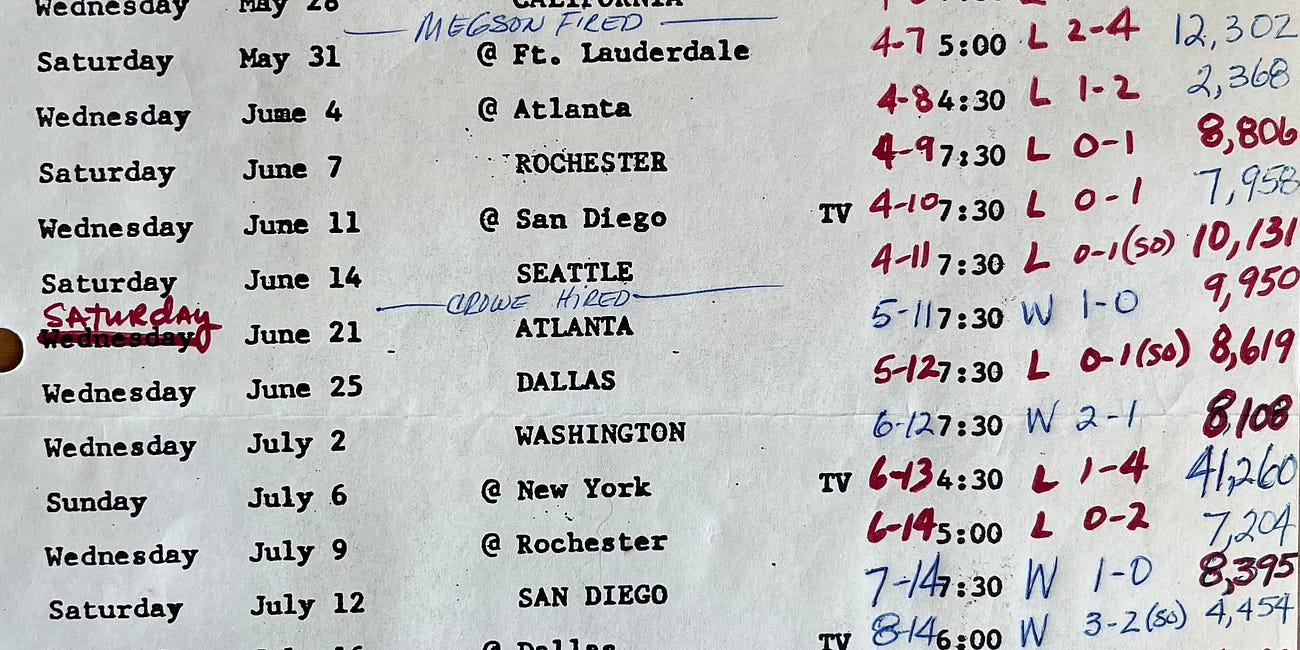 Wednesday May 28 CALIFORNIA
MEGSON FIRED
Saturday May 31 @ Ft. Lauderdale 4-7 5:00 L 2-4 12,302
Wednesday June 4 @ Atlanta 4-8 4:30 L 1-2 2,368
Saturday June 7 ROCHESTER 4-9 7:30 L 0-1 8,806
Wednesday June 11 @ San Diego TV 4-10 7:30 L 0-1 7,958
Saturday June 14 SEATTLE 4-11 7:30 L 0-1(SO) 10,131
CROWE HIRED
SATURDAY
Wednesday June 21 ATLANTA 5-11 7:30 W 1-0 9,950
Wednesday June 25 DALLAS 5-12 7:30 L 0-1(SO) 8,619
Wednesday July 2 WASHINGTON 6-12 7:30 W 2-1 8,108
Sunday July 6 @ New York TV 6-13 4:30 L 1-4 41,260
Wednesday July 9 @ Rochester 6-14 5:00 L 0-2 7,204
Saturday July 12 SAN DIEGO 7-14 7:30 W 1-0 8,395
@ Dallas TV 8-14 6:00 W 3-2(SO) 4,454